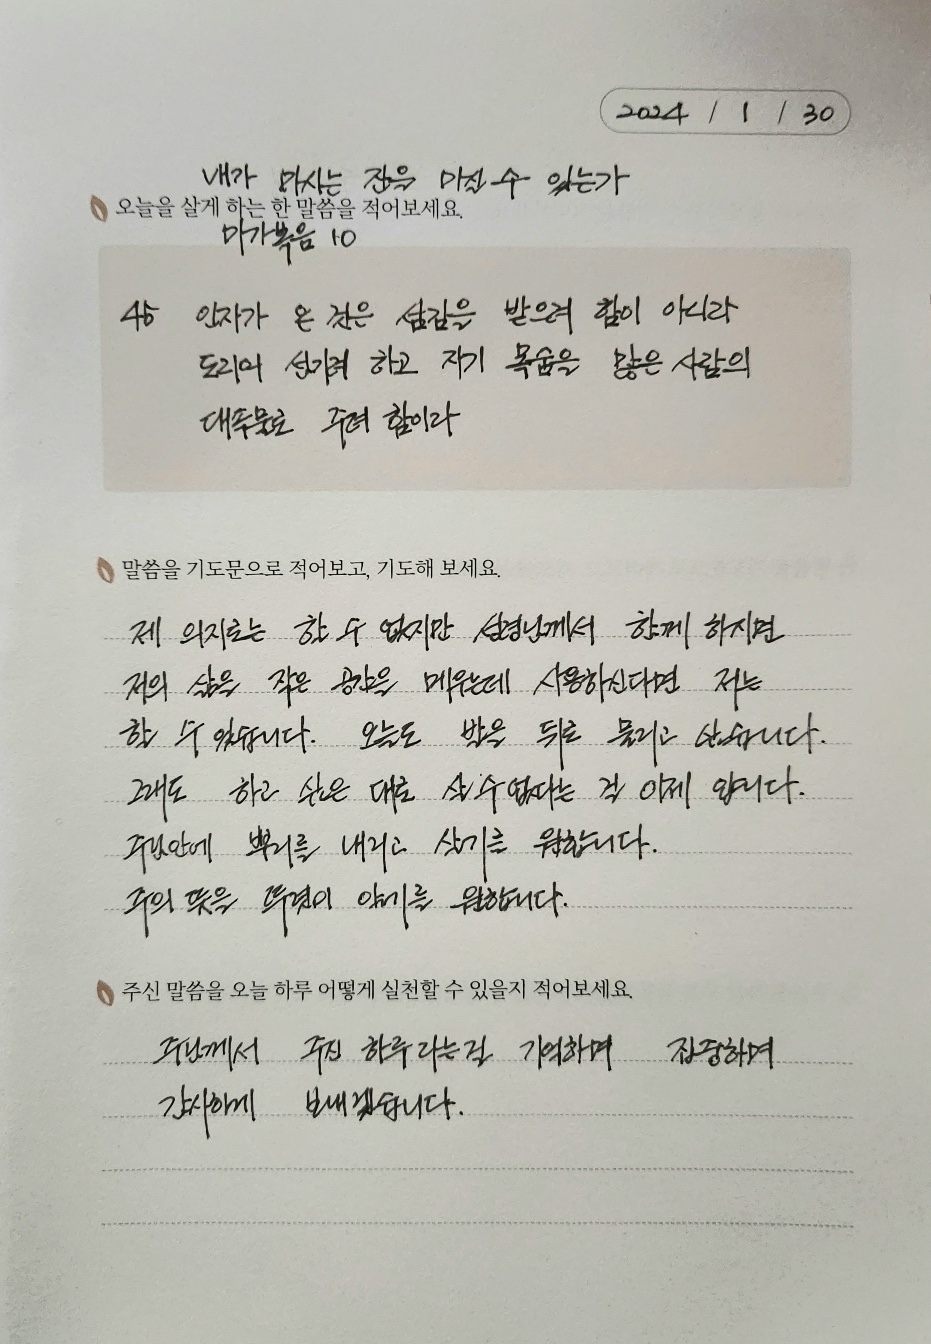 2024 / 1 / 30
내가 마시는 잔을 마실 수 있는가
오늘을 살게 하는 한 말씀을 적어보세요.
마가복음 10
45 인자가 온 것은 섬김을 받으려 함이 아니라
도리어 섬기려 하고 자기 목숨을 많은 사람의
대속물로 주려 함이라
말씀을 기도문으로 적어보고, 기도해 보세요.
제 의지로는 할 수 없지만 성령님께서 함께 하시면
저의 삶을 작은 공간을 메우는데 사용하신다면 저는
할 수 있습니다. 오늘도 밤을 뒤로 물리고 산습니다.
그래도 하고 싶은 대로 살 수 없다는 걸 이제 압니다.
주님안에 뿌리를 내리고 살기를 원합니다.
주의 뜻을 뚜렷이 알기를 원합니다.
주신 말씀을 오늘 하루 어떻게 실천할 수 있을지 적어보세요.
주님께서 주신 하루라는걸 기억하며 집중하며
감사하게 보내겠습니다.